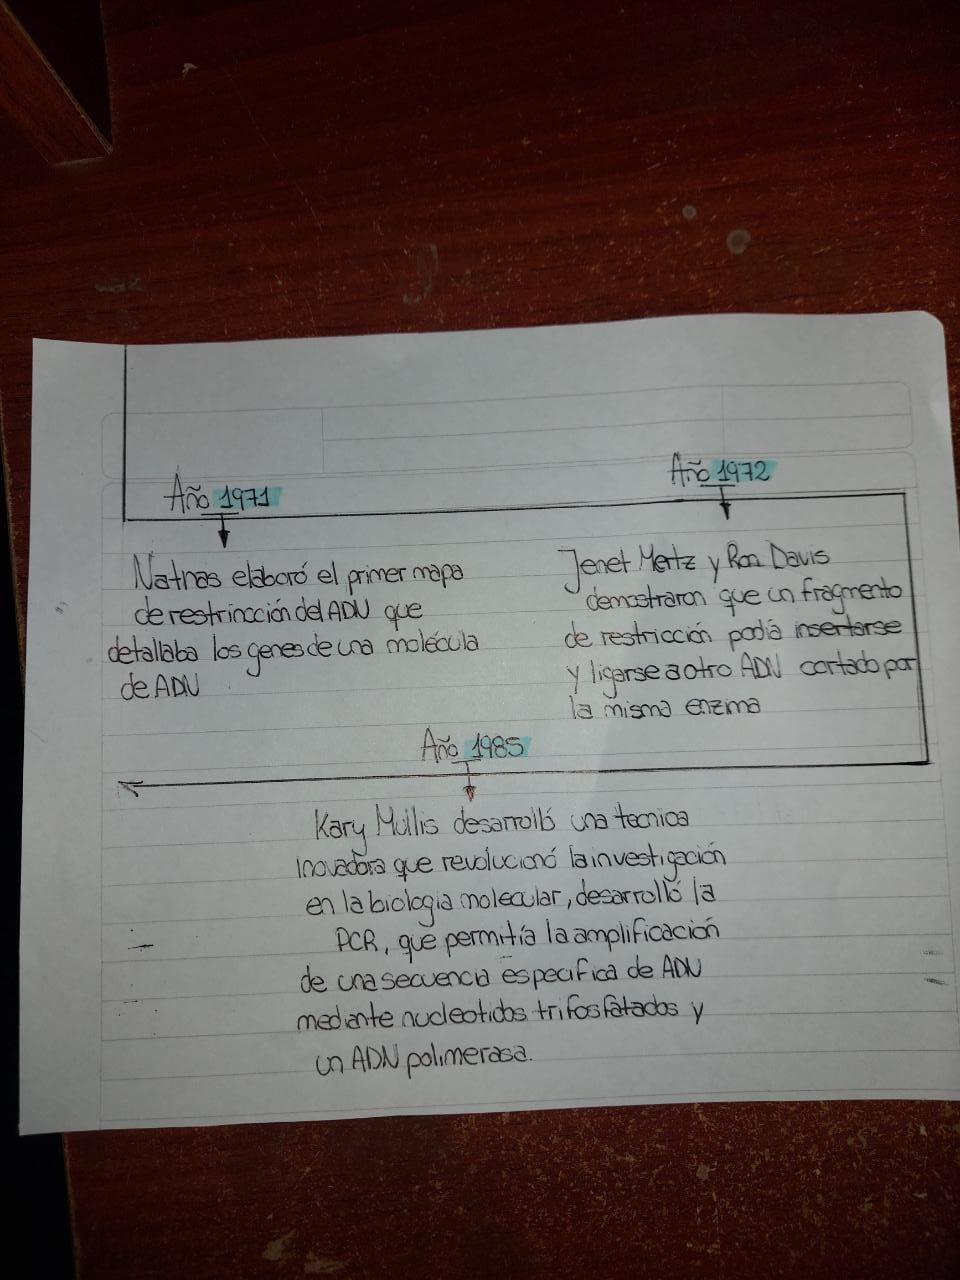 Año 1971
Natnas elaboró el primer mapa
de restrincción del ADN que
detallaba los genes de una molécula
de ADN
Año 1972
Jenet Mertz y Ron Davis
demostraron que un fragmento
de restricción podiá insertarse
y ligarse a otro ADN cortado por
la misma enzima
Año 1985
Kary Mullis desarrolló una tecnica
inovadora que revolucionó la investigación
en la biologia molecular, desarrolló la
PCR, que permitía la amplificación
de una secuencia especifica de ADN
mediante nucleotidos trifosfatados y
un ADN polimerasa.